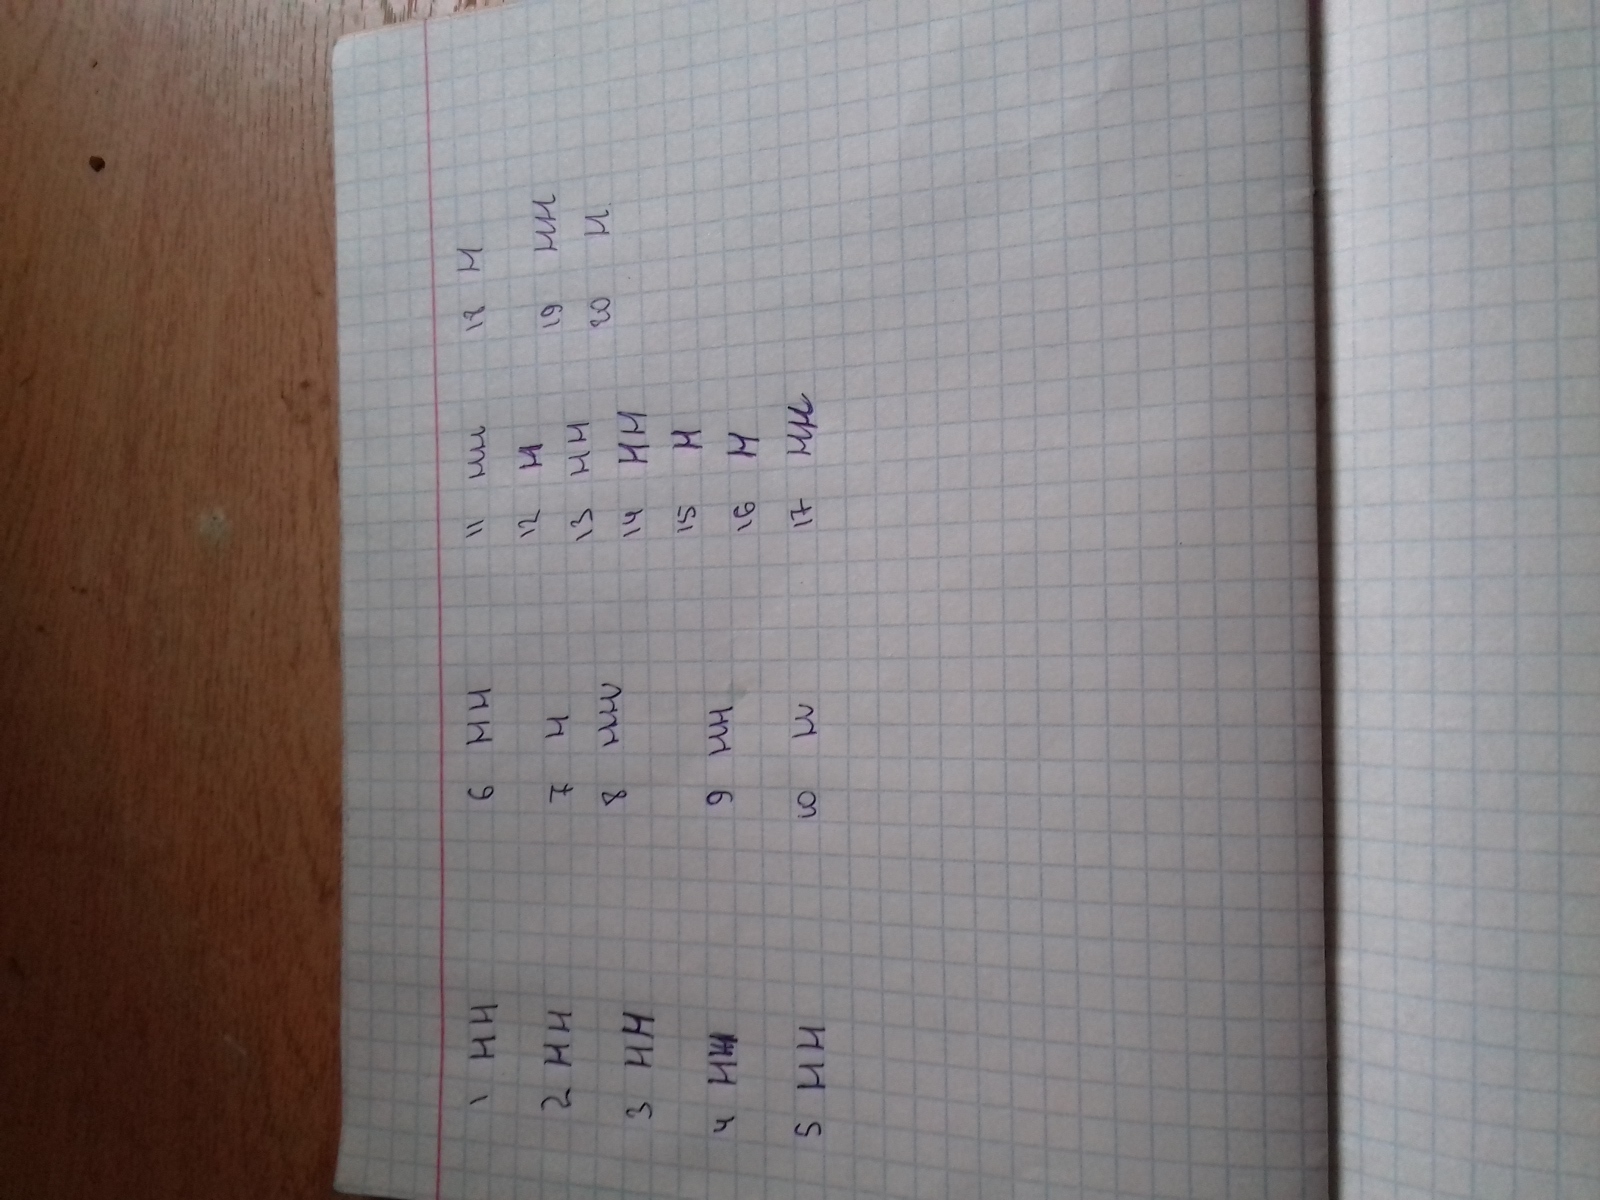 1 НН
2 НН
3 НН
4 Н
5 НН
6 НН
7 Н
8 НН
9 НН
10 Н
11 НН
12 Н
13 НН
14 НН
15 Н
16 Н
17 НН
18 Н
19 НН
20 Н